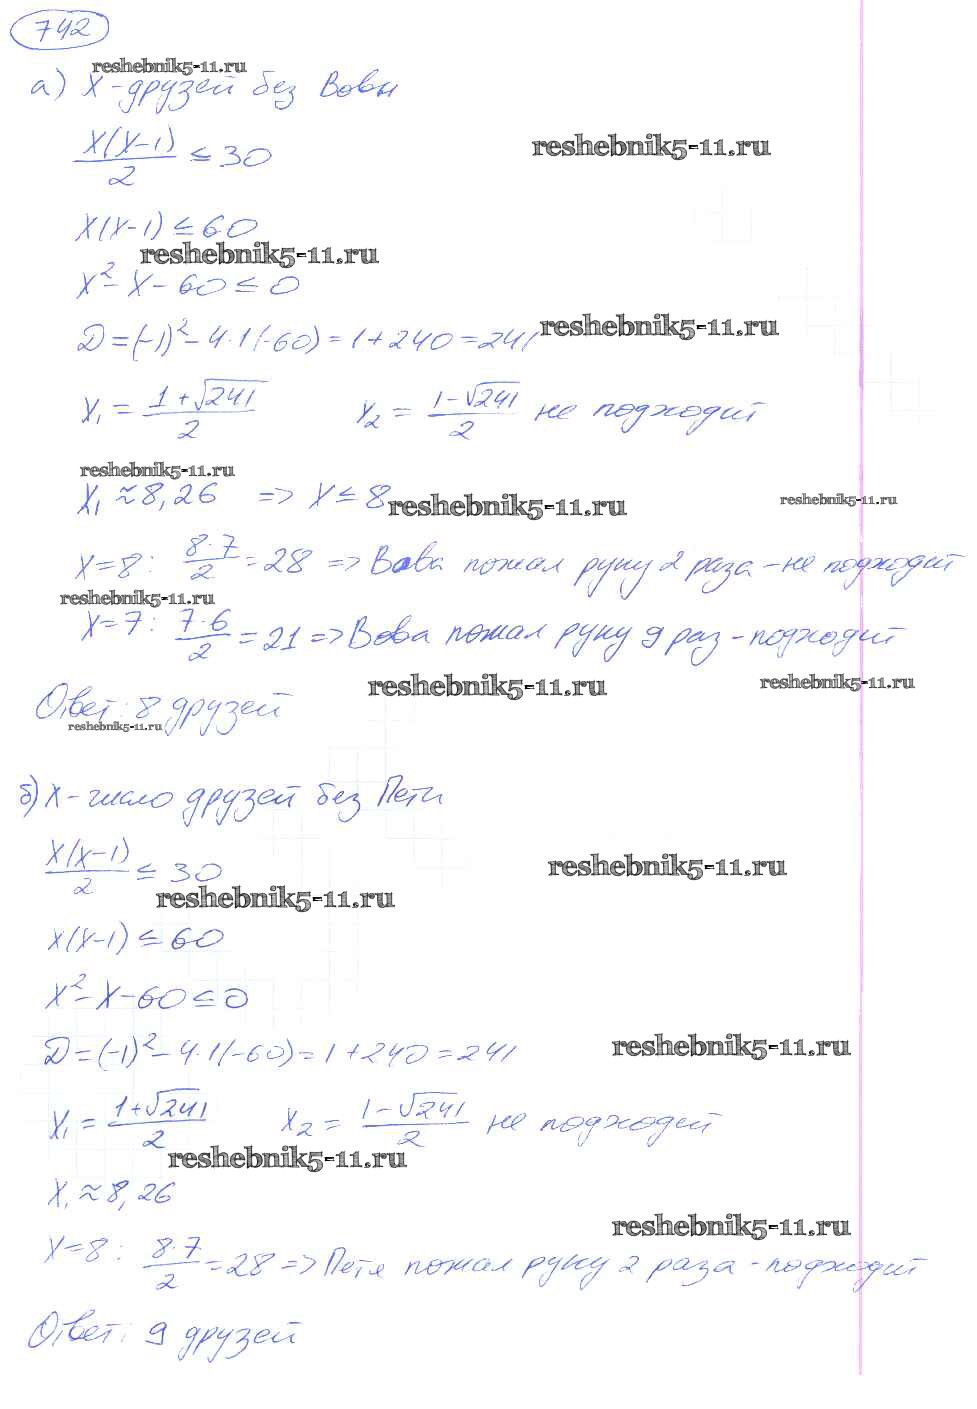 742
reshebnik5-11.ru
а) X - друзей без Вовы
X(X-1)/2 ≤ 30
reshebnik5-11.ru
X(X-1) ≤ 60
reshebnik5-11.ru
X² - X - 60 ≤ 0
reshebnik5-11.ru
D = (-1)² - 4·1(-60) = 1 + 240 = 241
X₁ = (1+√241)/2 X₂ = (1-√241)/2 не подходит
reshebnik5-11.ru
X₁ ≈ 8,26 => X ≤ 8
reshebnik5-11.ru
reshebnik5-11.ru
X=8: 8·7/2 = 28 => Вова пожал руку 2 раза - не подходит
reshebnik5-11.ru
X=7: 7·6/2 = 21 => Вова пожал руку 9 раз - подходит
reshebnik5-11.ru
reshebnik5-11.ru
Ответ: 8 друзей
reshebnik5-11.ru
б) X - число друзей без Пети
X(X-1)/2 ≤ 30
reshebnik5-11.ru
reshebnik5-11.ru
X(X-1) ≤ 60
X² - X - 60 ≤ 0
D = (-1)² - 4·1(-60) = 1 + 240 = 241
reshebnik5-11.ru
X₁ = (1+√241)/2 X₂ = (1-√241)/2 не подходит
reshebnik5-11.ru
X₁ ≈ 8,26
reshebnik5-11.ru
X=8: 8·7/2 = 28 => Петя пожал руку 2 раза - подходит
Ответ: 9 друзей